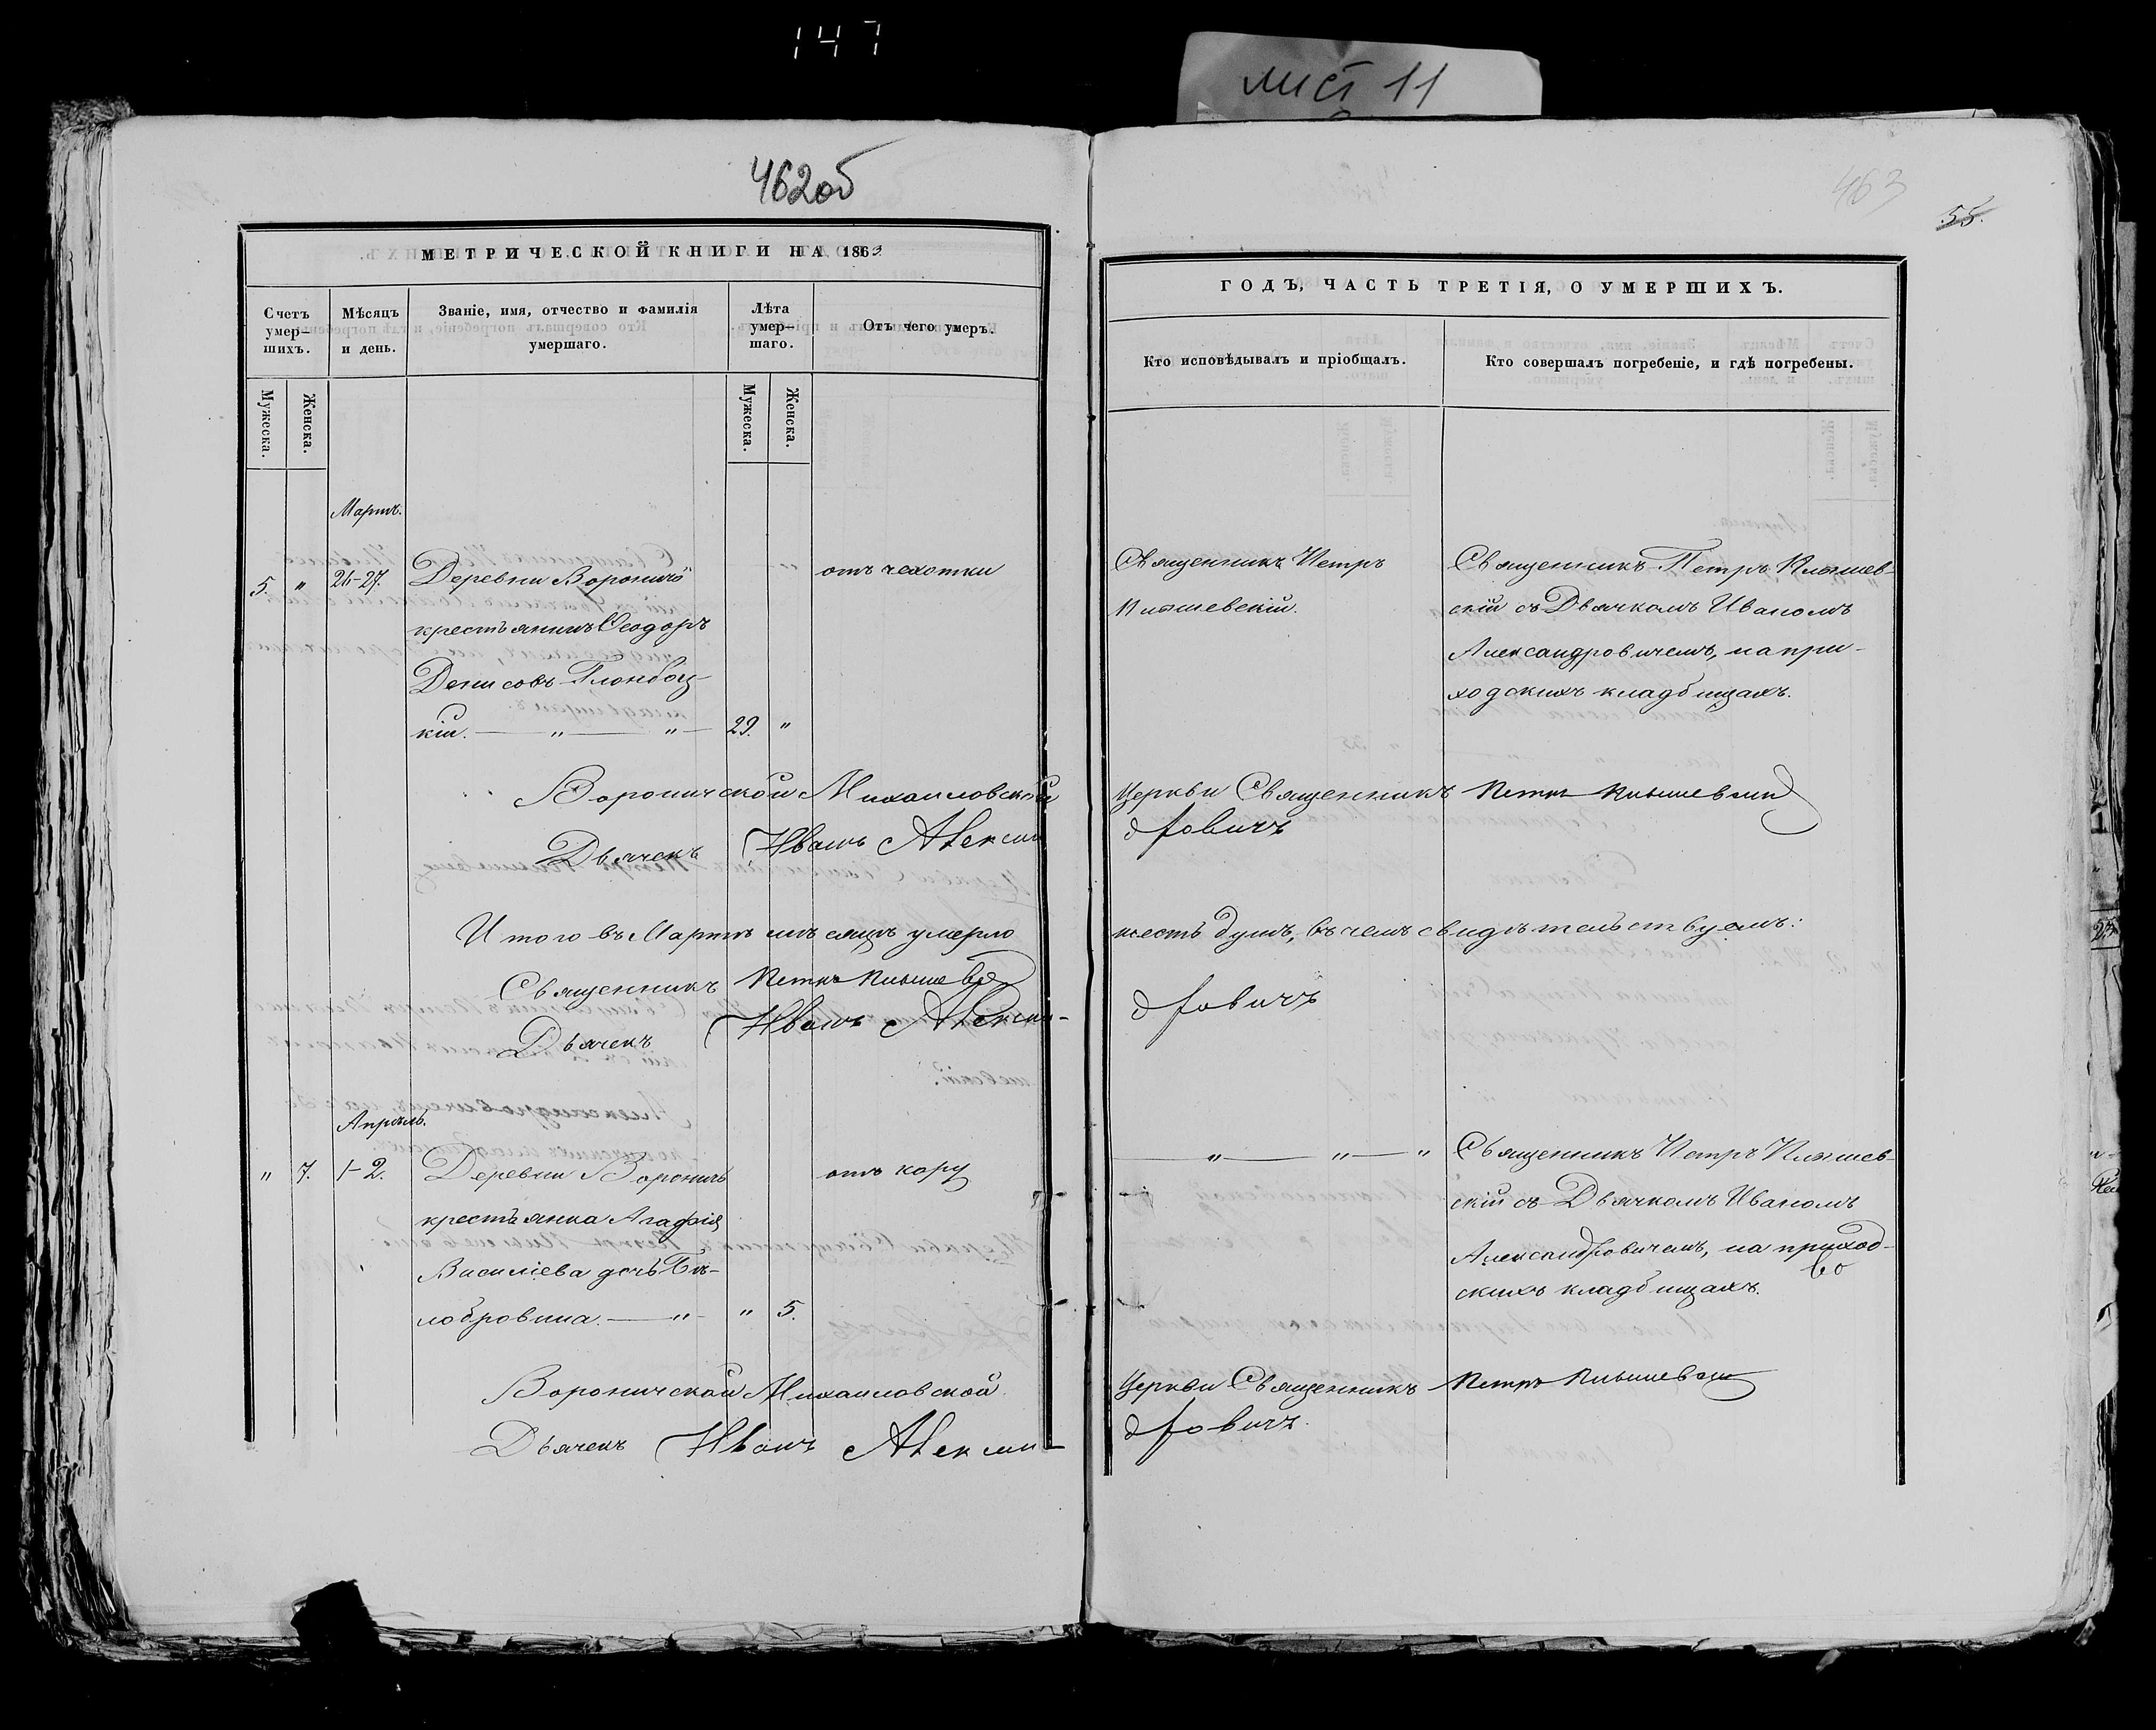 147
лист 11
462об
МЕТРИЧЕСКОЙ КНИГИ НА 1863
Счетъ умер—шихъ.
Мѣсяцъ и день.
Званіе, имя, отчество и фамилія умершаго.
Лѣта умер—шаго.
Отъ чего умеръ.
Мужеска.
Женска.
Мужеска.
Женска.
Мартъ.
5. " 26-27. Деревни Вороничъ отъ чехотки
крестьянинъ Ѳеодоръ
Денисовъ Глонбоц-
кій. — " — " — 29. "
Вороничской Михаиловской
Дьячекъ Иванъ Алексан
Итого въ Мартѣ мѣсяцѣ умерло
Священникъ Петръ
Дьячекъ Иванъ Алексан-
Апрѣль.
" 7. 1-2. Деревни Вороничъ отъ кору
крестьянка Агафія
Василіева дочь Бѣ-
лобровина. — " — " 5.
Вороничской Михаиловской
Дьячекъ Иванъ Алексан-
463
55.
ГОДЪ, ЧАСТЬ ТРЕТІЯ, О УМЕРШИХЪ.
Кто исповѣдывалъ и пріобщалъ.
Кто совершалъ погребеніе, и гдѣ погребены.
Священникъ Петръ
Священникъ Петръ
скій съ Дьячкомъ Иваномъ
Александровичемъ, на при-
ходскихъ кладбищахъ.
Церкви Священникъ Петръ
дровичъ
шесть душъ, въ чемъ свидѣтельствуемъ:
дровичъ
— " — " — " Священникъ Петръ
скій съ Дьячкомъ Иваномъ
Александровичемъ, на приход-
скихъ кладбищахъ.
Церкви Священникъ Петръ
дровичъ.